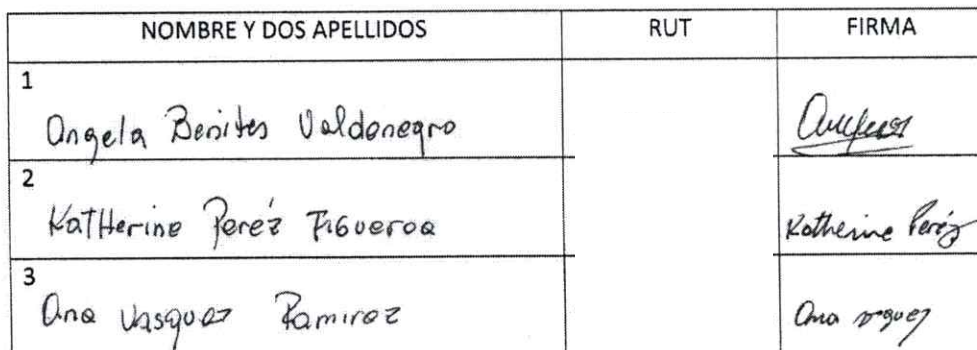 NOMBRE Y DOS APELLIDOS RUT FIRMA
1
Angela Benites Valdenegro
2
KatHerine Peréz Figueroa Katherine Peréz
3
Ana Vasquez Ramirez Ana